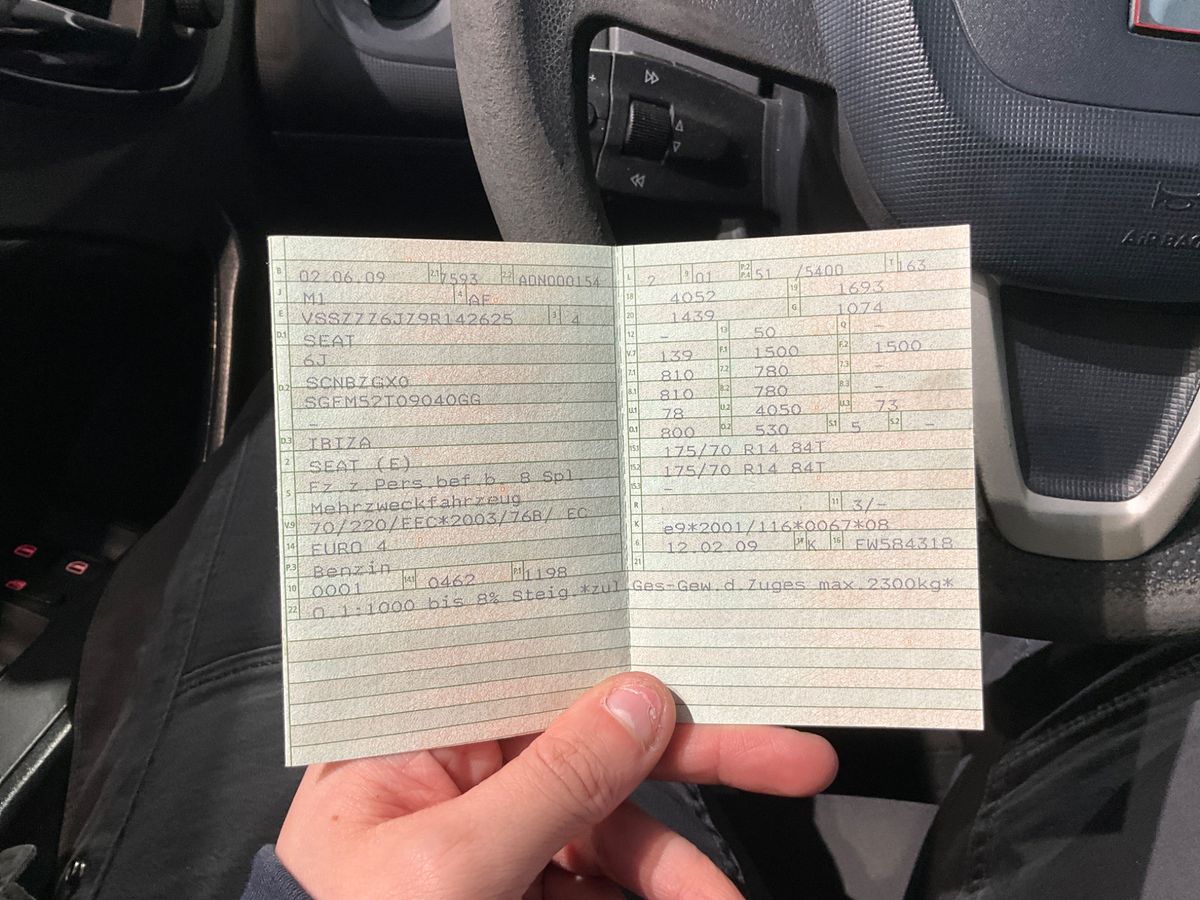 B 02.06.09 2.1 7593 2.2 ADN000154
J M1 4 AF
E VSSZZZ6JZ9R142625 3 4
D.1 SEAT
6J
D.2 SCNBZGX0
SGFM52T09040GG
-
D.3 IBIZA
2 SEAT (E)
5 Fz.z.Pers.bef.b. 8 Spl.
Mehrzweckfahrzeug
V.9 70/220/EEC*2003/76B/ EC
14 EURO 4
P.3 Benzin
10 0001 14.1 0462 P.1 1198
22 O.1:1000 bis 8% Steig.*zul.Ges-Gew.d.Zuges max.2300kg*
L 2 9 01 P.2 P.4 51 /5400 T 163
18 4052 19 1693
20 1439 G 1074
12 - 13 50 Q -
V.7 139 F.1 1500 F.2 1500
7.1 810 7.2 780 7.3 -
8.1 810 8.2 780 8.3 -
U.1 78 U.2 4050 U.3 73
O.1 800 O.2 530 S.1 5 S.2 -
15.1 175/70 R14 84T
15.2 175/70 R14 84T
15.3 -
R 11 3/-
K e9*2001/116*0067*08
6 12.02.09 17 K 16 EW584318
21
AIRBAG